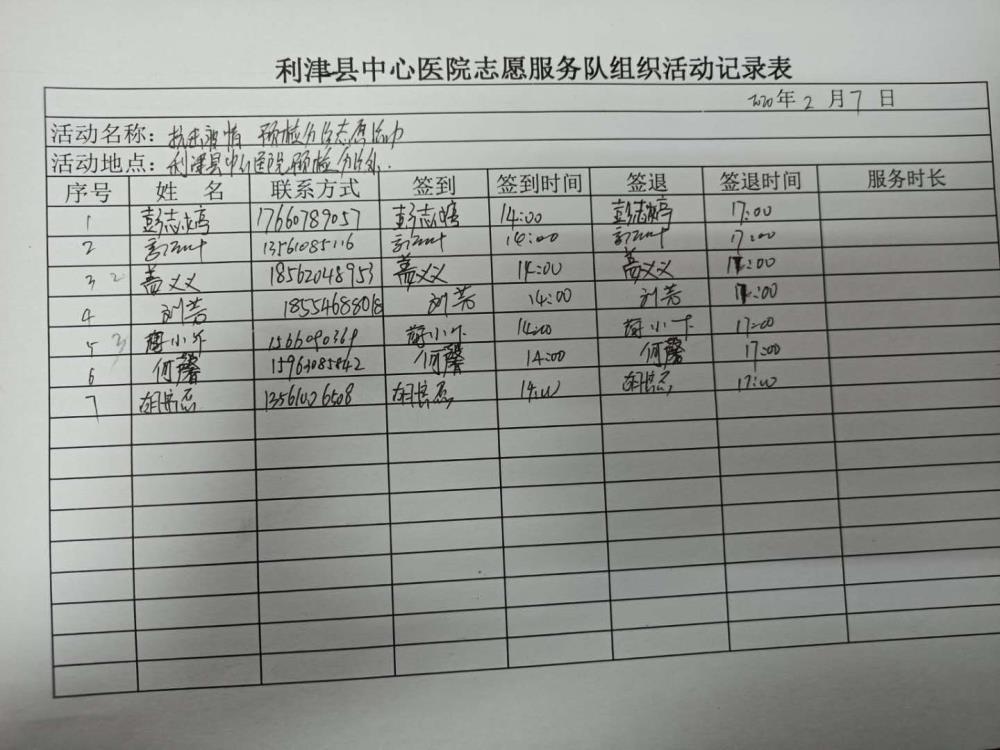 利津县中心医院志愿服务队组织活动记录表
2020年2月7日
活动名称：抗击疫情 预检分诊志愿活动
活动地点：利津县中心医院预检分诊处.
序号 姓名 联系方式 签到 签到时间 签退 签退时间 服务时长
1 彭志婷 17660789057 彭志婷 14:00 彭志婷 17:00
2 13561085116 14:00 17:00
3 2 盖义义 18562048953 盖义义 14:00 盖义义 17:00
4 刘芳 18554688018 刘芳 14:00 刘芳 17:00
5 3 小 1566090369 小 14:00 小 17:00
6 何馨 15963085842 何馨 14:00 何馨 17:00
7 胡 13561026508 胡 14:00 胡 17:00